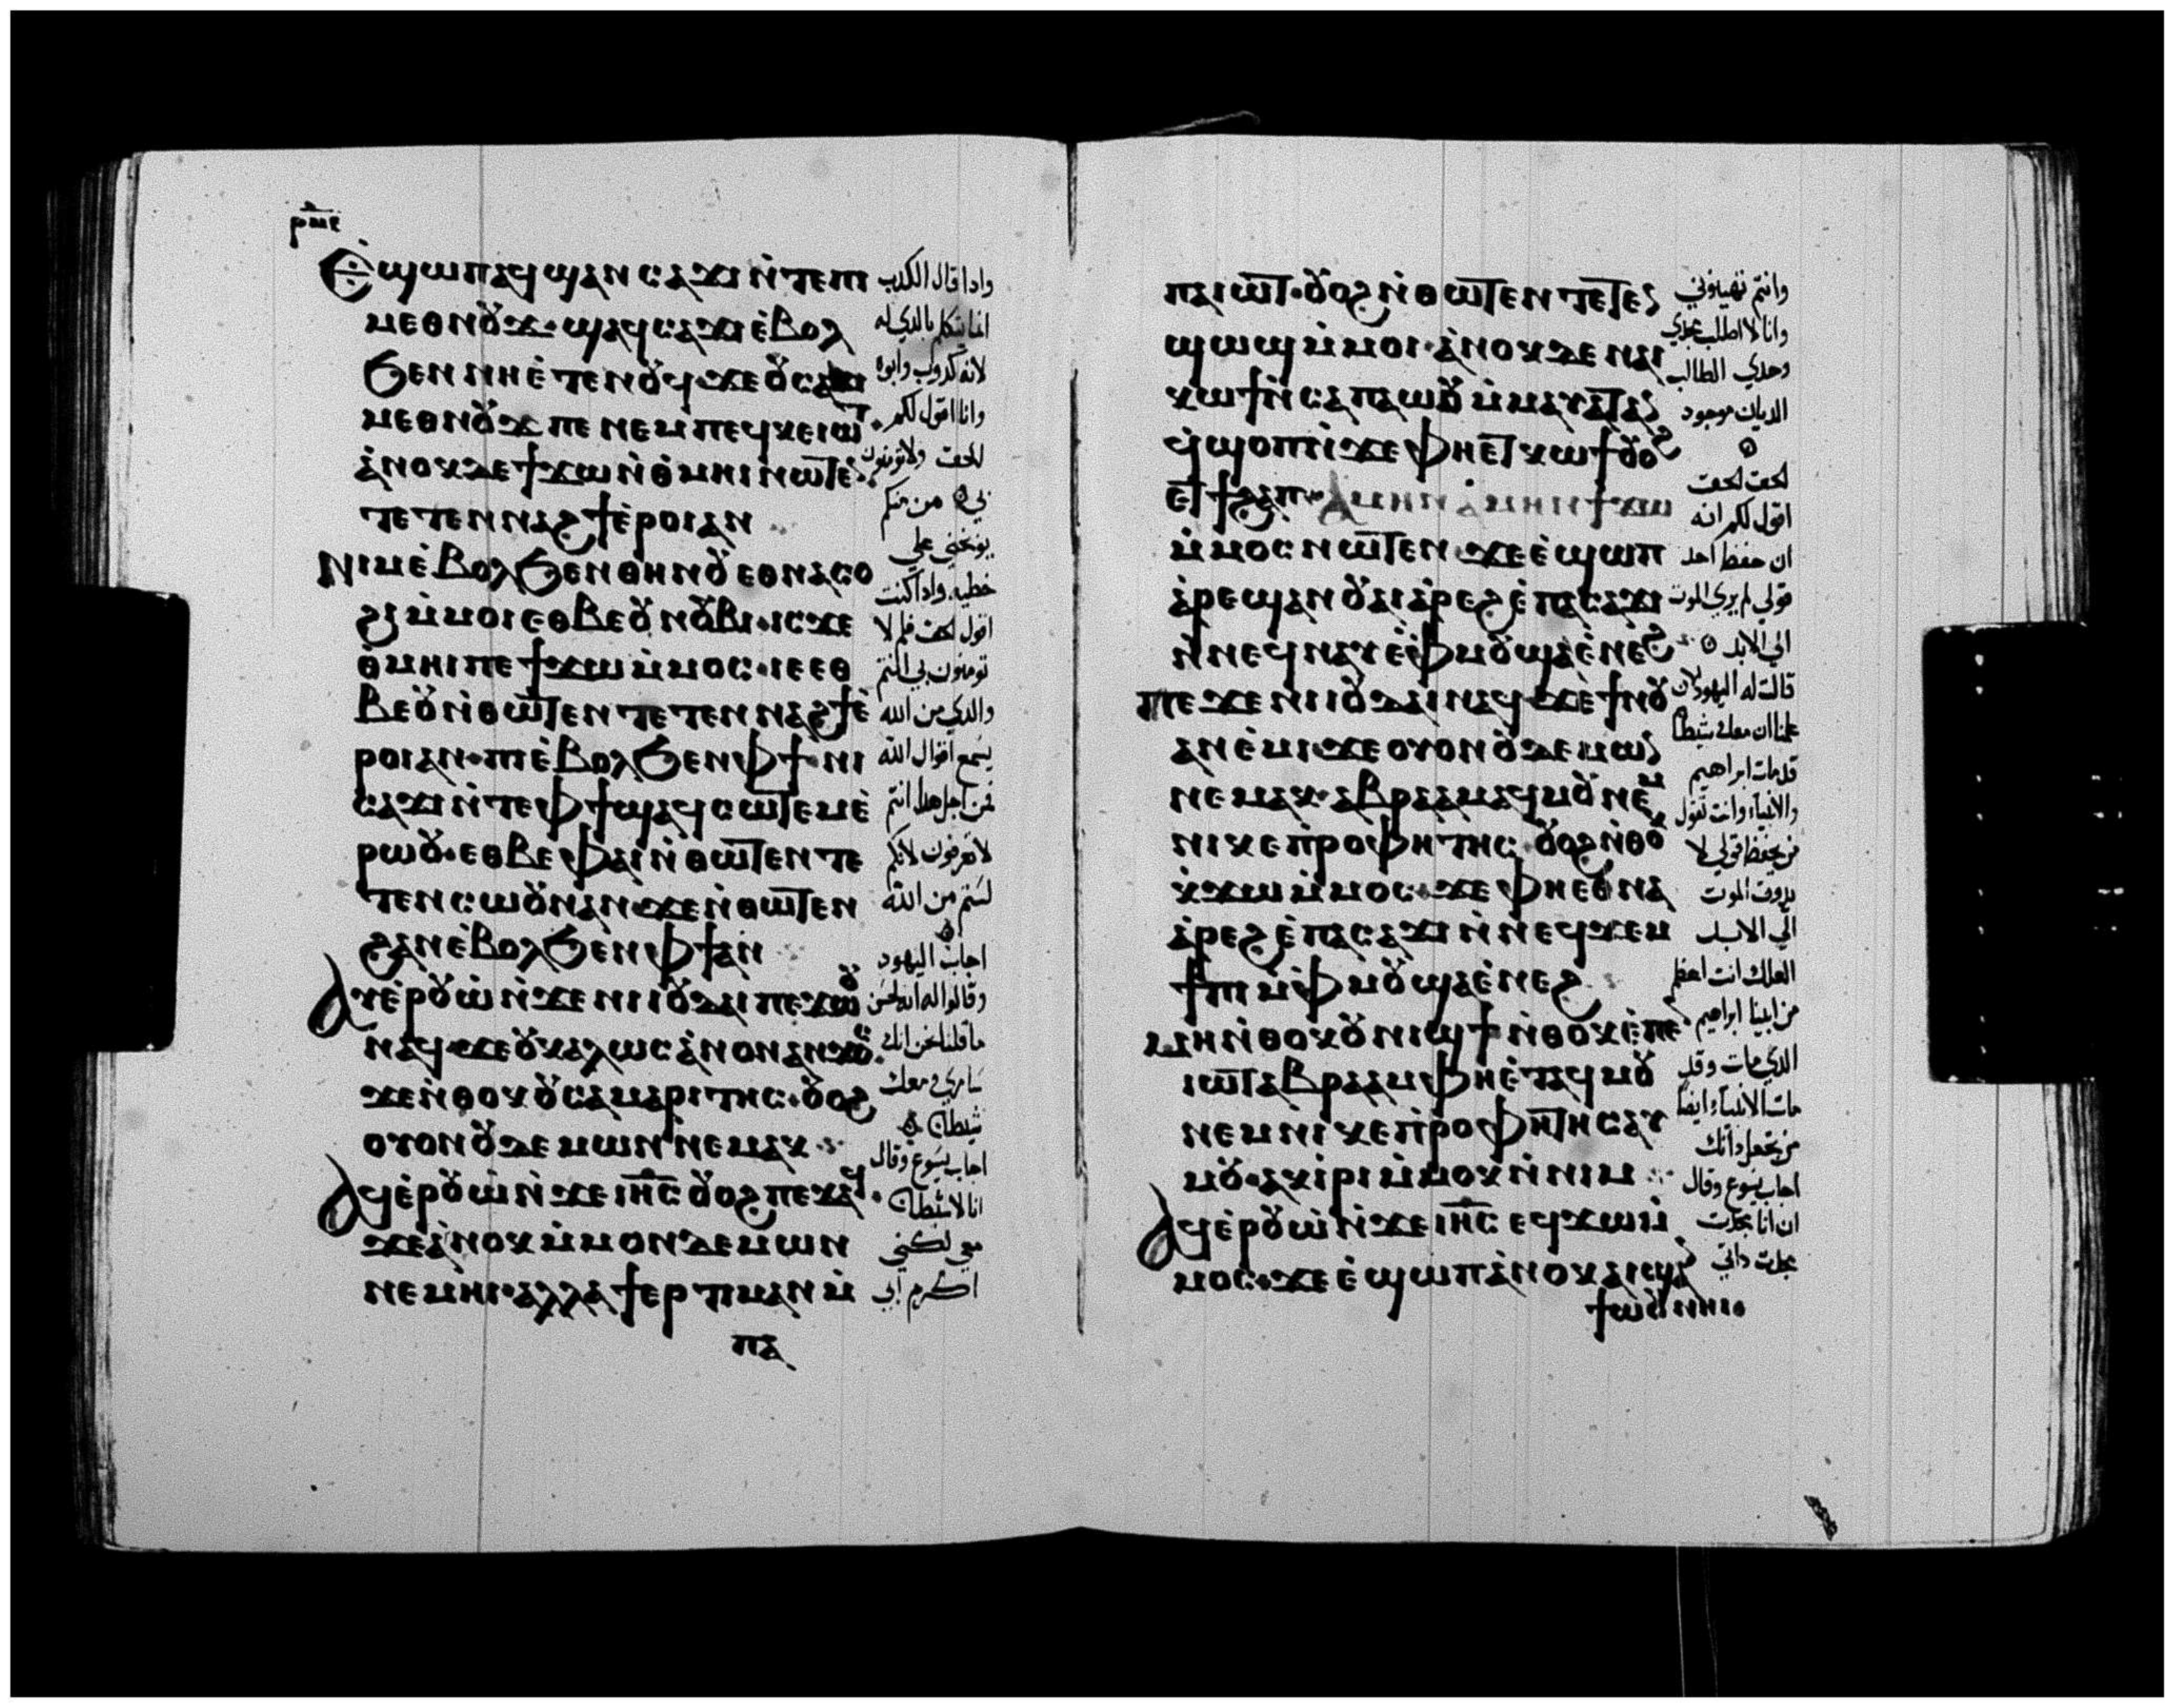 ⲣⲙⲉ
Ⲉϣⲱⲡ ⲁϥϣⲁⲛⲥⲁϫⲓ ⲛ̀ϯⲙⲉⲧ
ⲙⲉⲑⲛⲟⲩϫ · ϣⲁϥⲥⲁϫⲓ ⲉ̀ⲃⲟⲗ
ϧⲉⲛ ⲛⲏⲉ̀ⲧⲉⲛⲟⲩϥ · ϫⲉ ⲟⲩⲥⲁϫⲓ
ⲙⲉⲑⲛⲟⲩϫ ⲡⲉ ⲛⲉⲙ ⲡⲉϥⲕⲉⲓⲱⲧ ·
ⲁ̀ⲛⲟⲕ ⲇⲉ ϯϫⲱ ⲛ̀ⲑ̀ⲙⲏⲓ ⲛⲱⲧⲉⲛ
ⲧⲉⲧⲉⲛⲛⲁϩϯ ⲉ̀ⲣⲟⲓ ⲁⲛ
Ⲛⲓⲙ ⲉ̀ⲃⲟⲗ ϧⲉⲛ ⲑⲏⲛⲟⲩ ⲉⲑⲛⲁⲥⲟ
ϩⲓ ⲙ̀ⲙⲟⲓ ⲉⲑⲃⲉ ⲟⲩⲛⲟⲃⲓ · ⲓⲥϫⲉ
ⲑ̀ⲙⲏⲓ ⲡⲉϯϫⲱ ⲙ̀ⲙⲟⲥ · ⲓⲉ ⲉⲑ
ⲃⲉⲟⲩ ⲛ̀ⲑⲱⲧⲉⲛ ⲧⲉⲧⲉⲛⲛⲁϩϯ ⲉ̀
ⲣⲟⲓ ⲁⲛ · ⲡⲓⲉ̀ⲃⲟⲗ ϧⲉⲛ ⲫϯ · ⲛⲓ
ⲥⲁϫⲓ ⲛ̀ⲧⲉ ⲫϯ ϣⲁϥⲥⲱⲧⲉⲙ ⲉ̀
ⲣⲱⲟⲩ · ⲉⲑⲃⲉ ⲫⲁⲓ ⲛ̀ⲑⲱⲧⲉⲛ ⲧⲉ
ⲧⲉⲛⲥⲱⲟⲩⲛ ⲁⲛ · ϫⲉ ⲛ̀ⲑⲱⲧⲉⲛ
ϩⲁⲛⲉ̀ⲃⲟⲗ ϧⲉⲛ ⲫϯ ⲁⲛ
Ⲁⲩⲉ̀ⲣⲟⲩⲱ̀ ⲛ̀ϫⲉ ⲛⲓⲓⲟⲩⲇⲁⲓ ⲡⲉϫⲱⲟⲩ
ⲛⲁϥ · ϫⲉ ⲟⲩ ⲕⲁⲗⲱⲥ ⲁ̀ⲛⲟⲛ ⲁⲛ ϫⲟⲥ ·
ϫⲉ ⲛ̀ⲑⲟⲕ ⲟⲩⲥⲁⲙⲁⲣⲓⲧⲏⲥ · ⲟⲩⲟϩ
ⲟⲩⲟⲛ ⲟⲩⲇⲉⲙⲱⲛ ⲛⲉⲙⲁⲕ
Ⲁϥⲉ̀ⲣⲟⲩⲱ̀ ⲛ̀ϫⲉ ⲓⲏⲥ ⲟⲩⲟϩ ⲡⲉϫⲁϥ ·
ϫⲉ ⲁ̀ⲛⲟⲕ ⲙ̀ⲙⲟⲛ ⲇⲉⲙⲱⲛ
ⲛⲉⲙⲏⲓ · ⲁⲗⲗⲁ ϯⲉⲣⲧⲓⲙⲁⲛ ⲙ̀
ⲡⲁ
واذا قال الكذب
انما يتكلم بالذي له
لانه كذوب وابوه
وانا اقول لكم
الحق ولا تومنون
بي من منكم
يوبخني علي
خطيه واذا كنت
اقول الحق فلم لا
تومنون بي انتم
والذي من الله
يسمع اقوال الله
فمن اجل هذا انتم
لا تعرفون لانكم
لستم من الله
اجاب اليهود
وقالوا له
ما قلنا نحن انك
سامري ومعك
شيطان
اجاب يسوع وقال
انا لا شيطان
معي لكني
اكرم ابي
ⲡⲁⲓⲱⲧ · ⲟⲩⲟϩ ⲛ̀ⲑⲱⲧⲉⲛ ⲧⲉⲧⲉⲛ
ϣⲱϣ ⲙ̀ⲙⲟⲓ · ⲁ̀ⲛⲟⲕ ⲇⲉ ⲛⲁⲓ
ⲕⲱϯ ⲛ̀ⲥⲁ ⲡⲁⲱⲟⲩ ⲙ̀ⲙⲁⲩⲁⲧ ⲁⲛ
ϥ̀ϣⲟⲡ ⲛ̀ϫⲉ ⲫⲏⲉⲧⲕⲱϯ ⲟⲩⲟϩ
ⲉⲧϯϩⲁⲡ · Ⲁⲙⲏⲛ ⲁ̀ⲙⲏⲛ ϯϫⲱ
ⲙ̀ⲙⲟⲥ ⲛⲱⲧⲉⲛ · ϫⲉ ⲉ̀ϣⲱⲡ
ⲁ̀ⲣⲉϣⲁⲛ ⲟⲩⲁⲓ ⲁ̀ⲣⲉϩ ⲉ̀ⲡⲁⲥⲁϫⲓ
ⲛ̀ⲛⲉϥⲛⲁⲩ ⲉ̀ⲫ̀ⲙⲟⲩ ϣⲁ ⲉ̀ⲛⲉϩ
Ⲡⲉϫⲉ ⲛⲓⲓⲟⲩⲇⲁⲓ ⲛⲁϥ ϫⲉ ϯⲛⲟⲩ
ⲁⲛⲉ̀ⲙⲓ · ϫⲉ ⲟⲩⲟⲛ ⲟⲩⲇⲉⲙⲱⲛ
ⲛⲉⲙⲁⲕ · ⲁⲃⲣⲁⲁⲙ ⲁϥⲙⲟⲩ ⲛⲉⲙ
ⲛⲓⲕⲉⲡ̀ⲣⲟⲫⲏⲧⲏⲥ · ⲟⲩⲟϩ ⲛ̀ⲑⲟⲕ
ⲕ̀ϫⲱ ⲙ̀ⲙⲟⲥ · ϫⲉ ⲫⲏⲉⲑⲛⲁ
ⲁ̀ⲣⲉϩ ⲉ̀ⲡⲁⲥⲁϫⲓ ⲛ̀ⲛⲉϥϫⲉⲙ
ϯⲡⲓ ⲙ̀ⲫ̀ⲙⲟⲩ ϣⲁ ⲉ̀ⲛⲉϩ
Ⲙⲏ ⲛ̀ⲑⲟⲕ ⲟⲩⲛⲓϣϯ ⲛ̀ⲑⲟⲕ ⲉ̀ⲡⲉⲛ
ⲓⲱⲧ ⲁⲃⲣⲁⲁⲙ ⲫⲏⲉ̀ⲧⲁϥⲙⲟⲩ
ⲛⲉⲙ ⲛⲓⲕⲉⲡ̀ⲣⲟⲫⲏⲧⲏⲥ ⲁⲩ
ⲙⲟⲩ · ⲁⲕⲓ̀ⲣⲓ ⲙ̀ⲙⲟⲕ ⲛ̀ⲛⲓⲙ
Ⲁϥⲉ̀ⲣⲟⲩⲱ̀ ⲛ̀ϫⲉ ⲓⲏⲥ ⲉϥϫⲱ ⲙ̀
ⲙⲟⲥ · ϫⲉ ⲉ̀ϣⲱⲡ ⲁ̀ⲛⲟⲕ ⲁⲓϣⲁⲛ
ϯⲱⲟⲩ ⲛⲏⲓ
وانتم تهينوني
وانا لا اطلب مجدي
وحدي الطالب
الديان موجود
الحق الحق
اقول لكم انه
ان حفظ احد
قولي لم يري الموت
الي الابد
قالت له اليهود الان
علمنا ان معك شيطانا
قد مات ابراهيم
والانبياء وانت تقول
من يحفظ قولي لا
يذوق الموت
الي الابد
العلك انت اعظم
من ابينا ابراهيم
الذي مات وقد
مات الانبياء ايضا
من تجعل ذاتك
اجاب يسوع وقال
ان انا مجدت
مجدت ذاتي